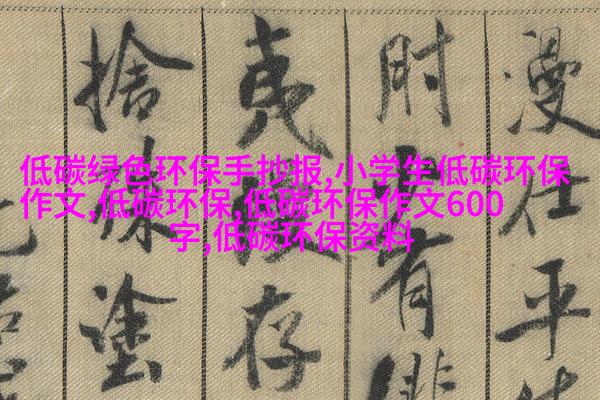 低碳绿色环保手抄报,小学生低碳环保
作文,低碳环保,低碳环保作文600
字,低碳环保资料
漫仕平
肘有
夷漫存
捨塗